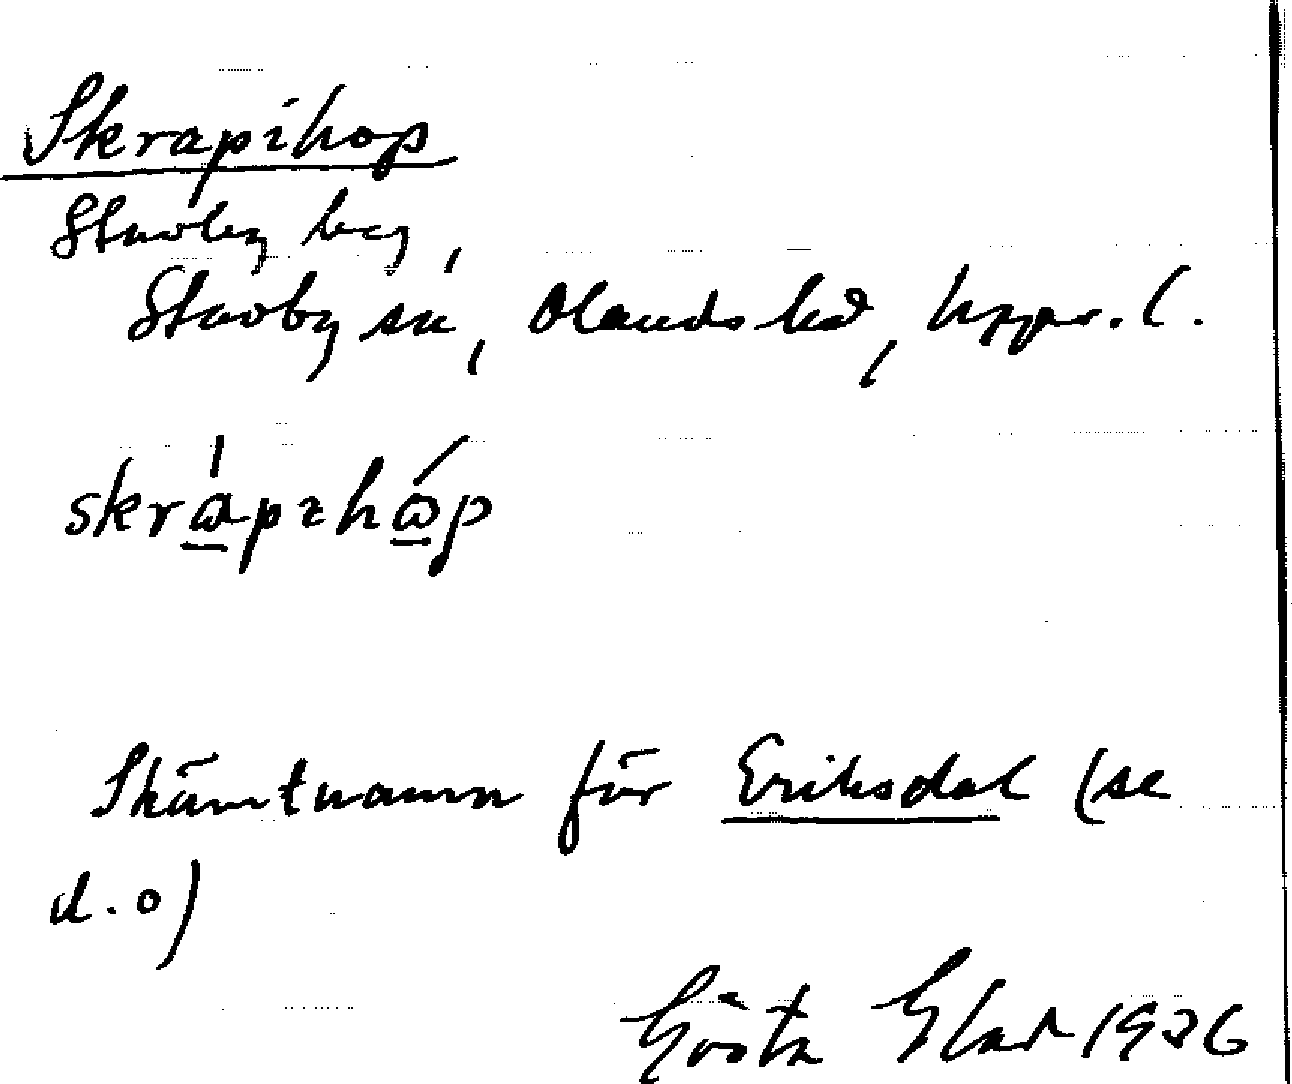 Skrapihop
Stavby by,
Stavby sn, Olands hd, Upps. l.
skrapihop
Skämtnamn för Eriksdal (se
d.o)
Gösta Glad 1936